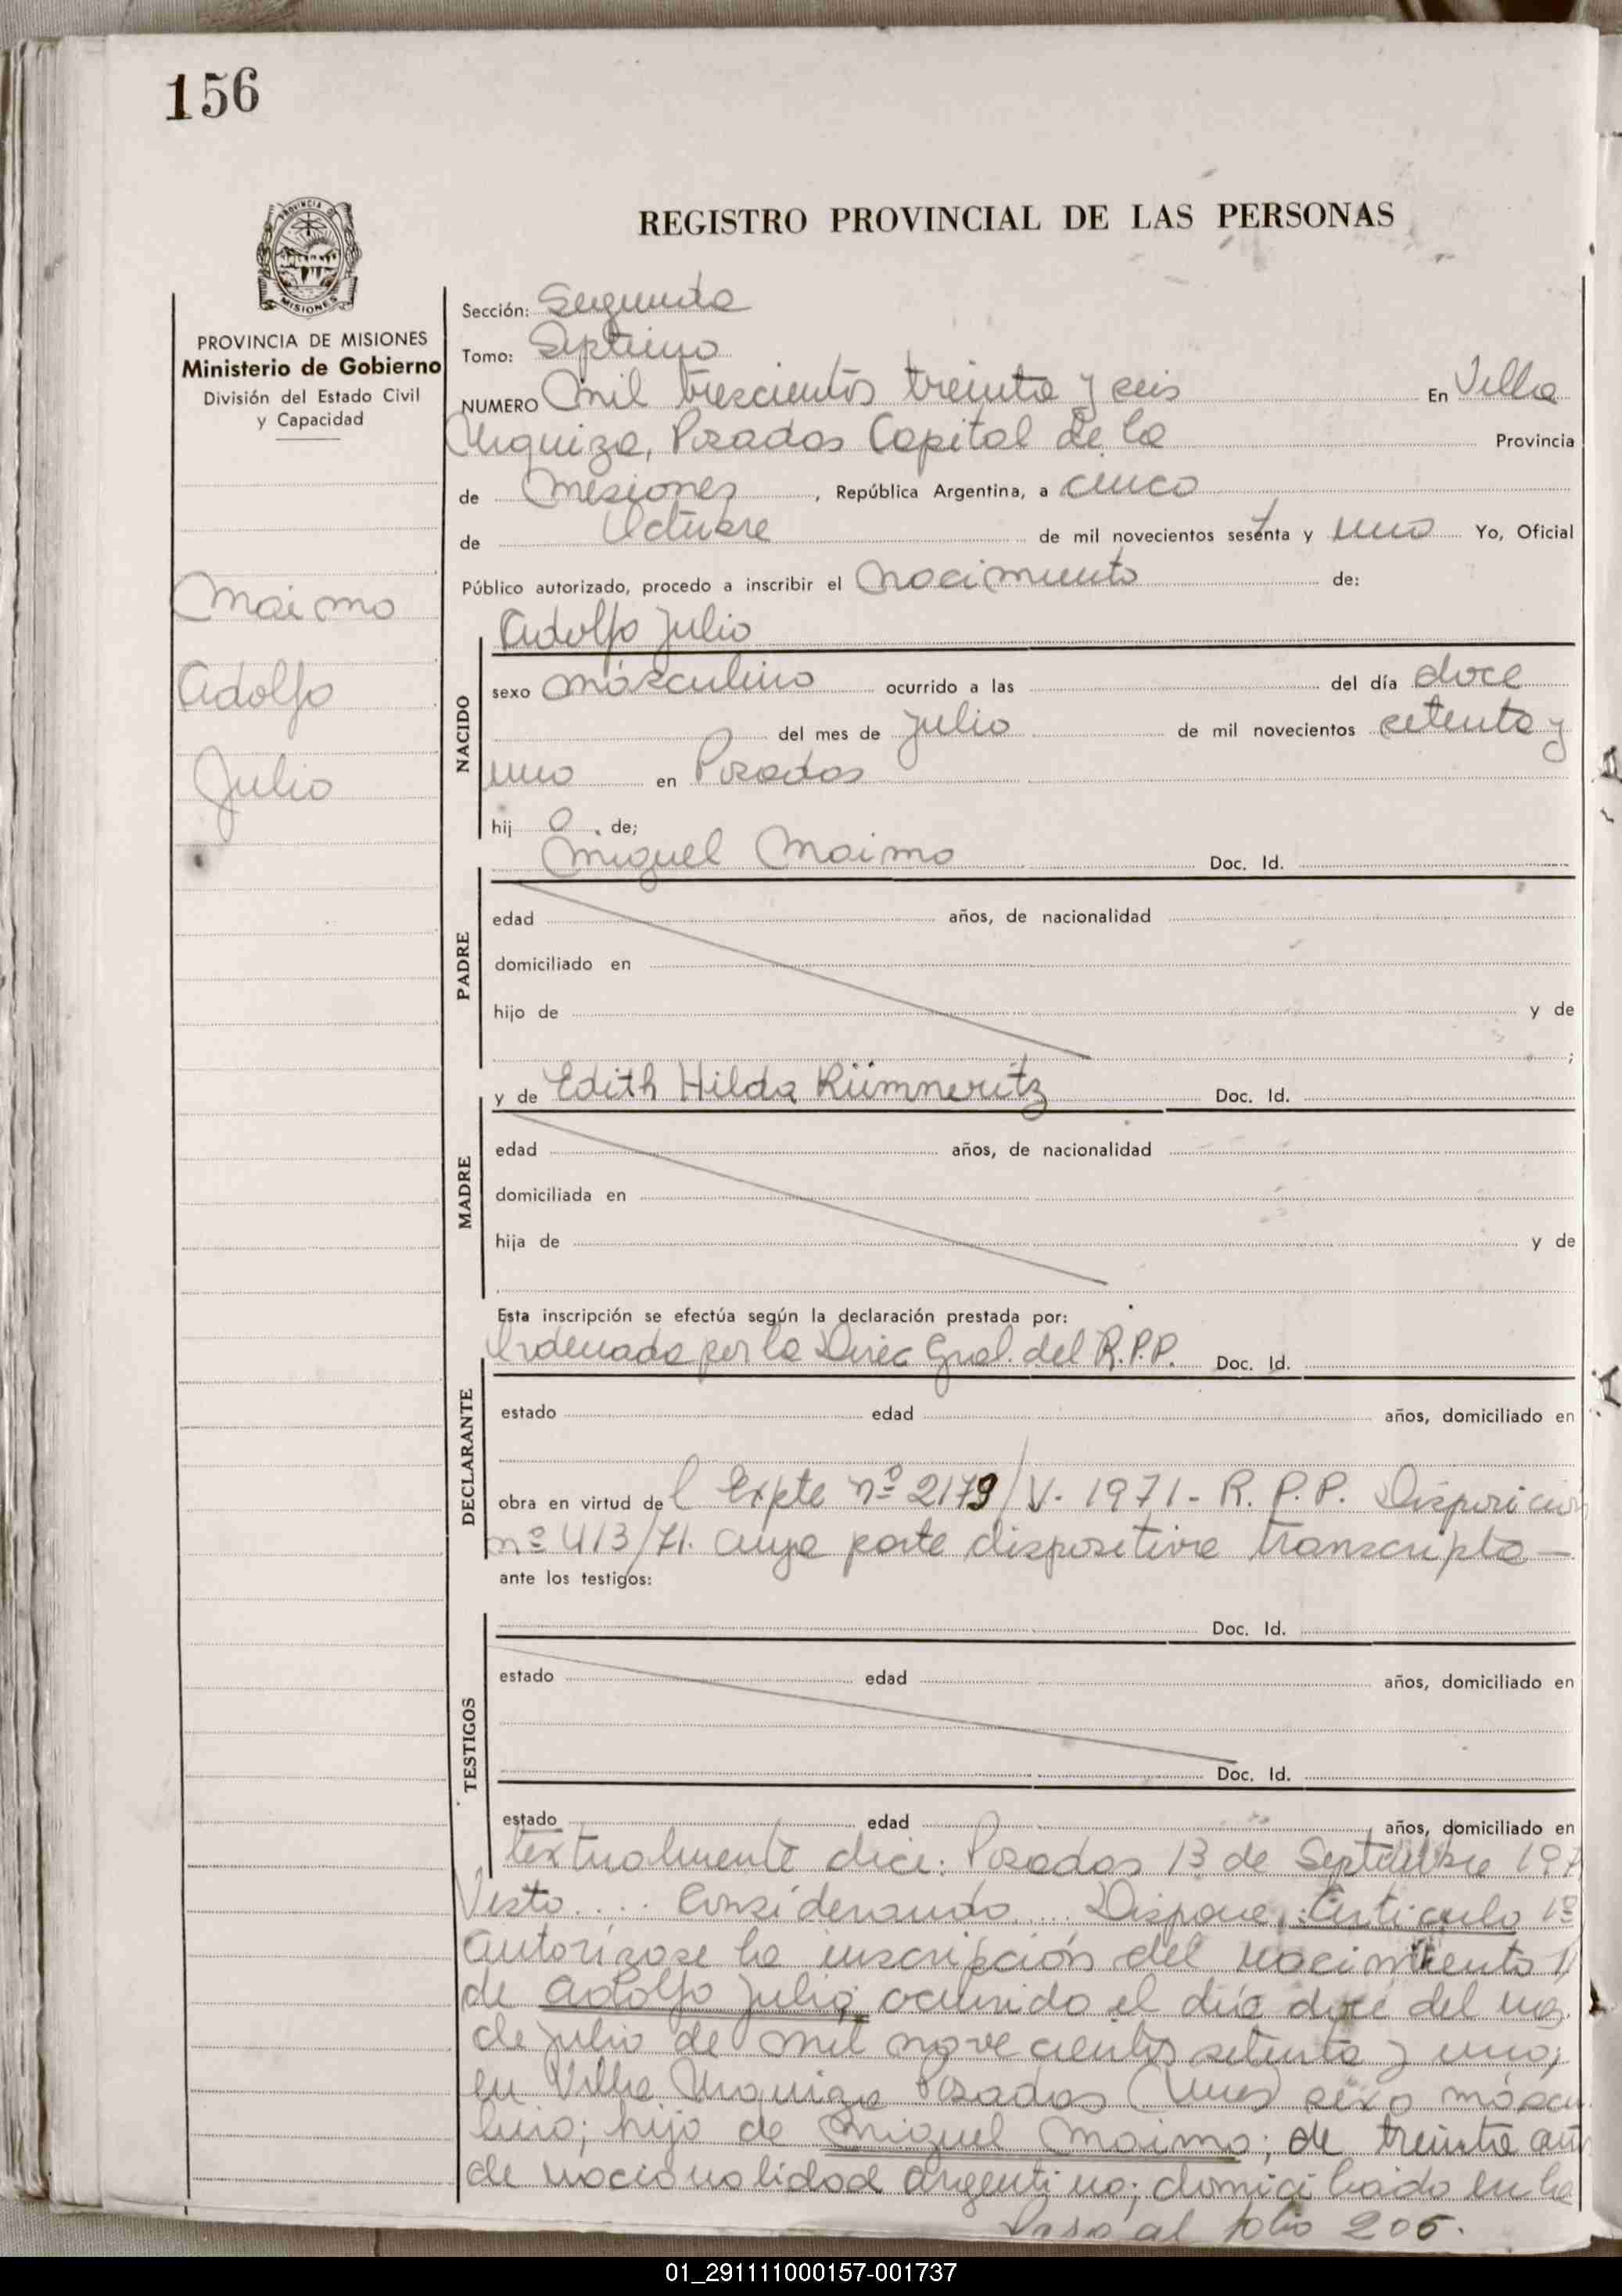 156
REGISTRO PROVINCIAL DE LAS PERSONAS
PROVINCIA DE MISIONES
MISIONES
PROVINCIA DE MISIONES
Ministerio de Gobierno
División del Estado Civil
y Capacidad
Maimo
Adolfo
Julio
Sección: Segunda
Tomo: Septimo
NUMERO Mil trescientos treinta y seis En Villa
Urquiza, Posadas Capital de la Provincia
de Misiones, República Argentina, a cinco
de Octubre de mil novecientos sesenta y uno Yo, Oficial
Público autorizado, procedo a inscribir el Nacimiento de:
NACIDO
Adolfo Julio
sexo másculino ocurrido a las del día doce
del mes de Julio de mil novecientos setenta y
uno en Posadas
hij o de;
PADRE
Miguel Maimo Doc. Id.
edad años, de nacionalidad
domiciliado en
hijo de y de
;
MADRE
y de Edith Hilda Kümmeritz Doc. Id.
edad años, de nacionalidad
domiciliada en
hija de y de
Esta inscripción se efectúa según la declaración prestada por:
DECLARANTE
Ordenada por la Direc Gral. del R.P.P. Doc. Id.
estado edad años, domiciliado en
obra en virtud de l Expte nº 2179/V. 1971 - R. P. P. Disposicion
nº 413/71. cuya parte dispositiva transcripta —
ante los testigos:
TESTIGOS
Doc. Id.
estado edad años, domiciliado en
Doc. Id.
estado edad años, domiciliado en
textualmente dice: Posadas 13 de Septiembre 197
Visto.... Considerando.... Dispone: Articulo 1º
Autorizase la inscripción del nacimiento
de Adolfo Julio; ocurrido el día doce del mes
de julio de mil novecientos setenta y uno;
en Villa Urquiza Posadas (Mnes) sexo máscu
lino; hijo de Miguel Maimo; de treinta añ
de nacionalidad argentino; domiciliado en la
Pasa al folio 206.
01_291111000157-001737